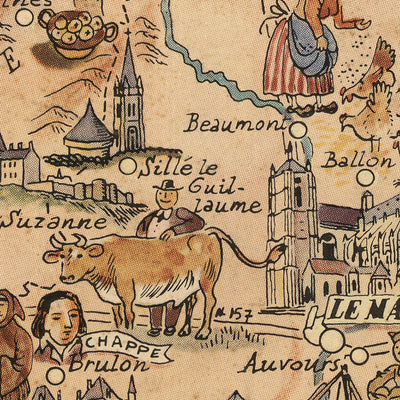 Beaumont
Ballon
Sillé le
Guil-
laume
Suzanne
N 157
LE MA
CHAPPE
Brulon
Auvours